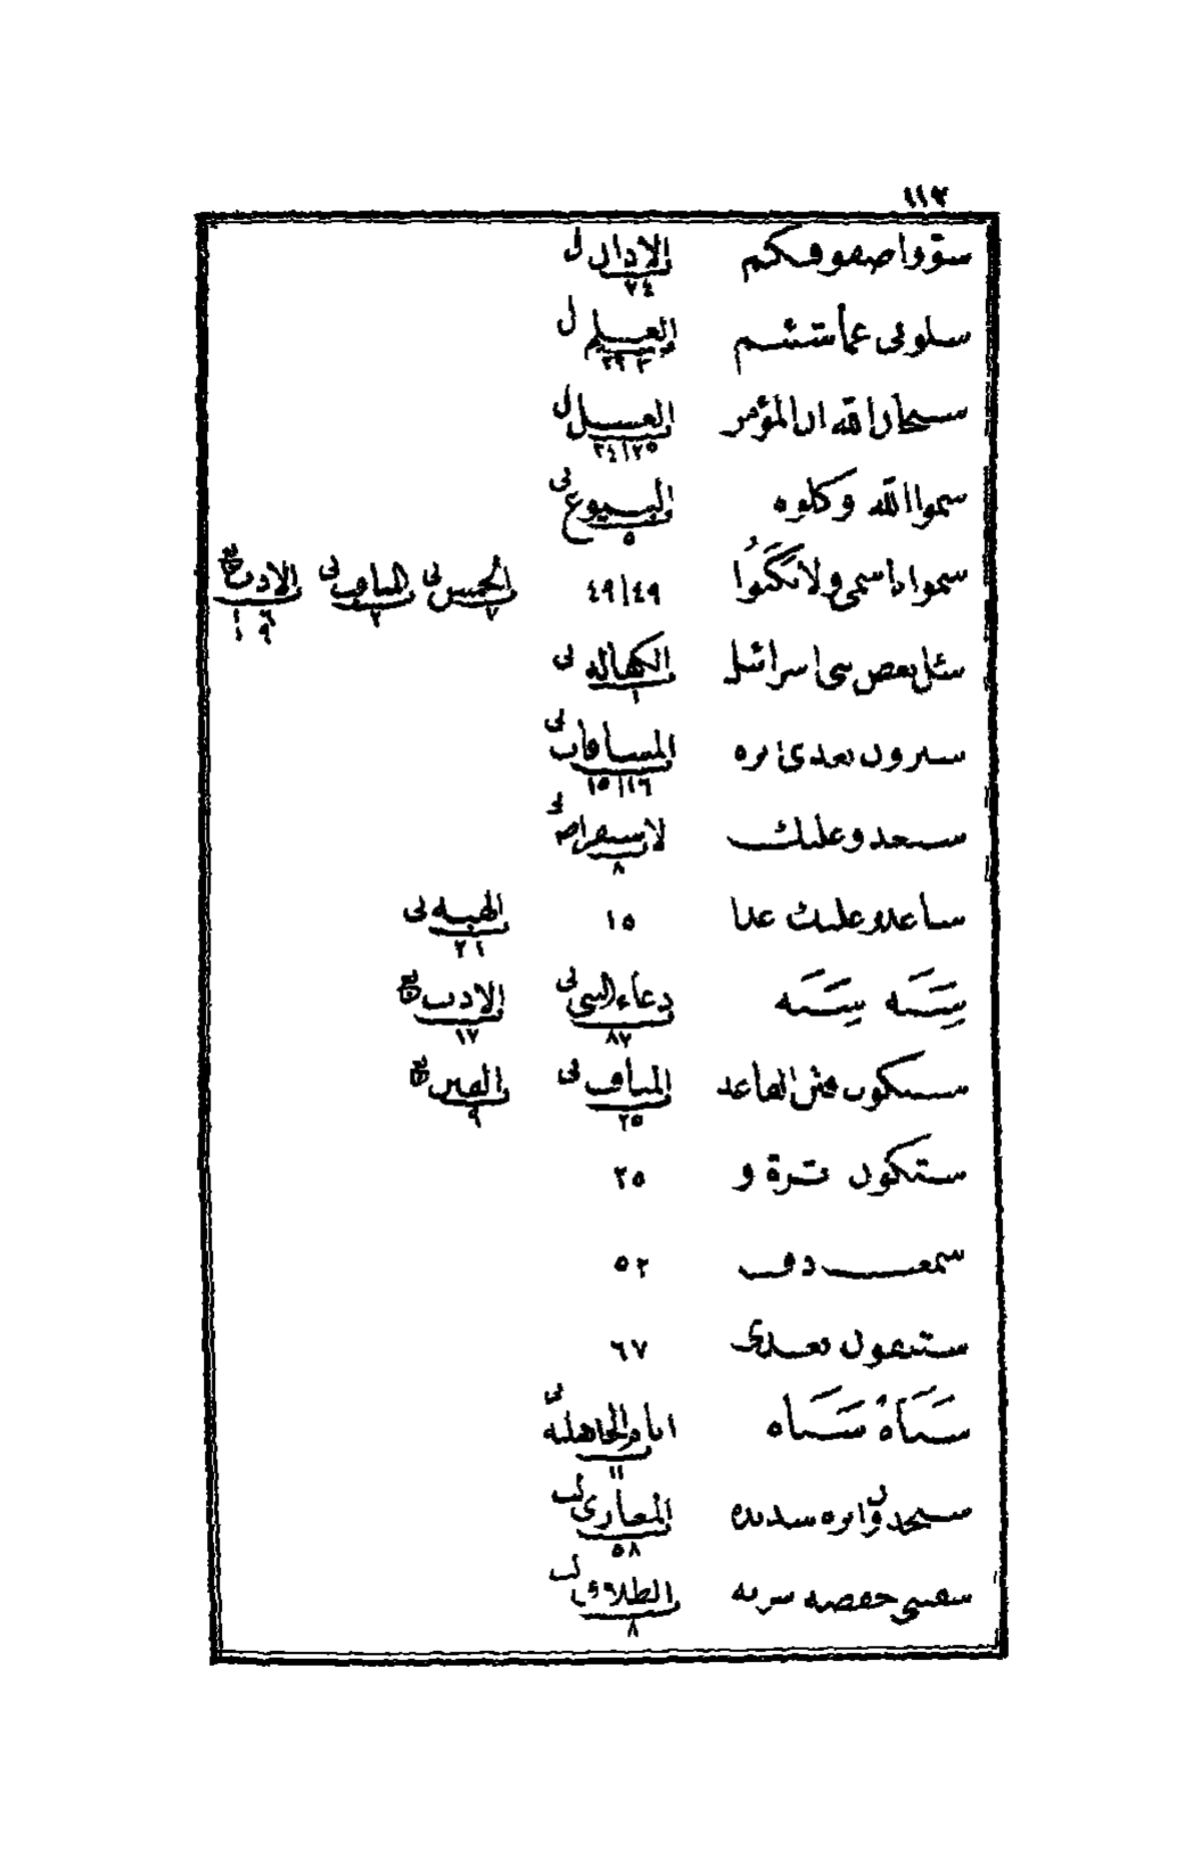 ١١٢
سوّوا صفوفكم الاذان ل
٧٤
سلونى عما شئتم العلم ل
٢٩ ٣
سبحان الله ان المؤمن الغسل ل
٢٤/٢٥
سموا الله وكلوه البيوع لى
٥
سموا باسمى ولا تَكَنَّوا ٤٩/٤٩ الخمس لى المناقب لى الادب
٧ ٢
سئل بعض بنى اسرائيل الكفالة لى
١
سترون بعدى اثرة المساقات لى
١٥/١٦
سنجد وعليك لاستقراض
٨
ساغدو عليك غدا ١٥ الهبه لى
٢١
سَنَه سَنَه دعاء النبى لى الادب
٨٢ ١٧
ستكون فتن القاعد المناقب لى الفتن
٢٥ ٩
ستكون ثرة و ٢٥
٥٢
ستلقون بعدى ٦٧
سَنَاهْ سَنَاه ايام الجاهلية لى
١١
ستجدون اثرة شديدة المغازى
٥٨
سقتنى حفصة شربة الطلاق
٨